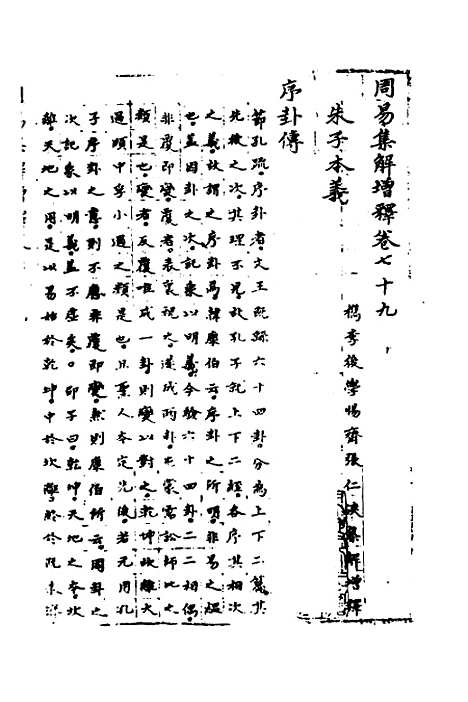 周易集解增釋卷七十九
檇李後學惕齋張仁浹集解增釋
朱子本義
序卦傳
節孔疏序卦者文王既繇六十四卦分為上下二篇其
先後之次其理不見故孔子就上下二經各序其相次
之義故謂之序卦焉韓康伯云序卦之所明非易之縕
也蓋因卦之次託象以明義今驗六十四卦二二相偶
非覆即變覆者表裏視之遂成兩卦屯蒙需訟師比之
類是也變者反覆唯成一卦則變以對之乾坤坎離大
過頤中孚小過之類是也且聖人本定先後若元用孔
子序卦之意則不應非覆即變然則康伯所云因卦之
次託象以明義蓋不虛矣○邵子曰乾坤天地之本坎
離天地之用是以易始於乾坤中於坎離終於既未濟